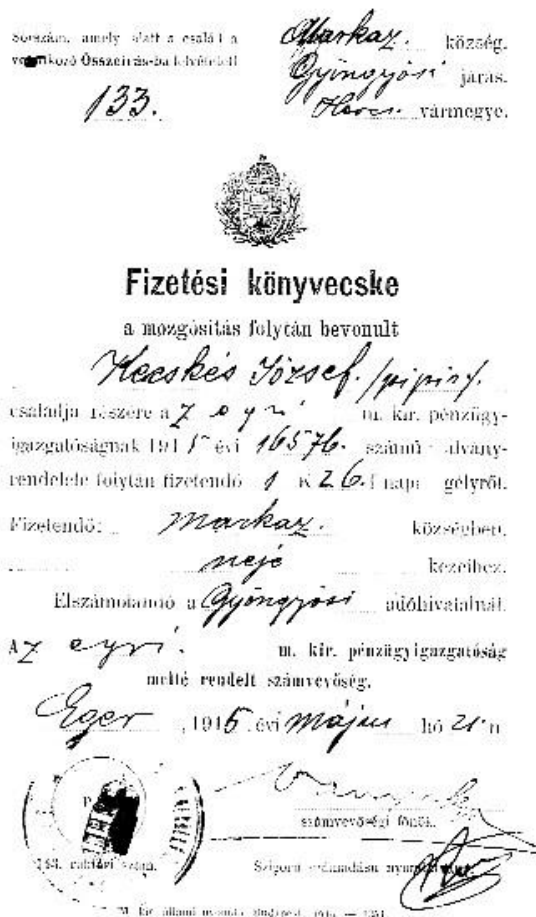 Sorszám, amely alatt a család a
vonatkozó Összeirás-ba felvétetett
133.
Markaz. község.
Gyöngyösi járas.
Heves. vármegye.
Fizetési könyvecske
a mozgósitás folytán bevonult
Kecskés József. /pipis/.
családja részére a z egri m. kir. pénzügy-
igazgatóságnak 1915 évi 16576. számú utalvány-
rendelete folytán fizetendő 1 K 26 f napi segélyről.
Fizetendő: Markaz. községben.
neje kezeihez.
Elszámolandó a Gyöngyösi adóhivatalnál.
Az egri. m. kir. pénzügyigazgatóság
mellé rendelt számvevőség.
Eger, 1915 évi május hó 21 n
számvevőségi főnök.
raktári szám.
Szigorú számadású nyomtatvány.
M. kir. állami nyomda Budapest, 1914.